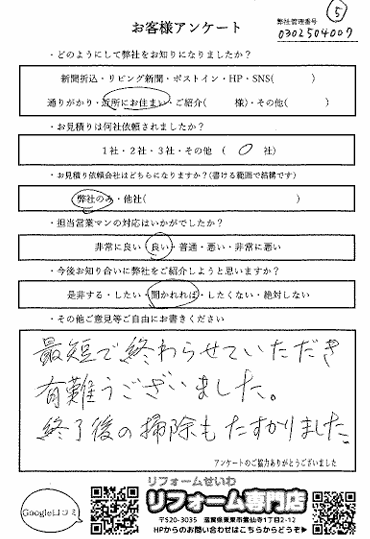 ⑤
お客様アンケート
弊社管理番号
0302504007
・どのようにして弊社をお知りになりましたか？
新聞折込・リビング新聞・ポストイン・HP・SNS(　　　)
通りがかり・近所にお住まい・ご紹介(　　　様)・その他(　　　)
・お見積りは何社依頼されましたか？
1社・2社・3社・その他　(　0　社)
・お見積り依頼会社はどちらになりますか？(書ける範囲で結構です)
弊社のみ・他社(　　　)
・担当営業マンの対応はいかがでしたか？
非常に良い・良い・普通・悪い・非常に悪い
・今後お知り合いに弊社をご紹介しようと思いますか？
是非する・したい・聞かれれば・したくない・絶対しない
・その他ご意見等ご自由にお書きください
最短で終わらせていただき
有難うございました。
終了後の掃除もたすかりました
アンケートのご協力ありがとうございました
Google口コミ
リフォームせいわ
リフォーム専門店
〒520-3035　滋賀県栗東市霊仙寺1丁目2-12
HPからのお問い合わせはこちらからどうぞ▶